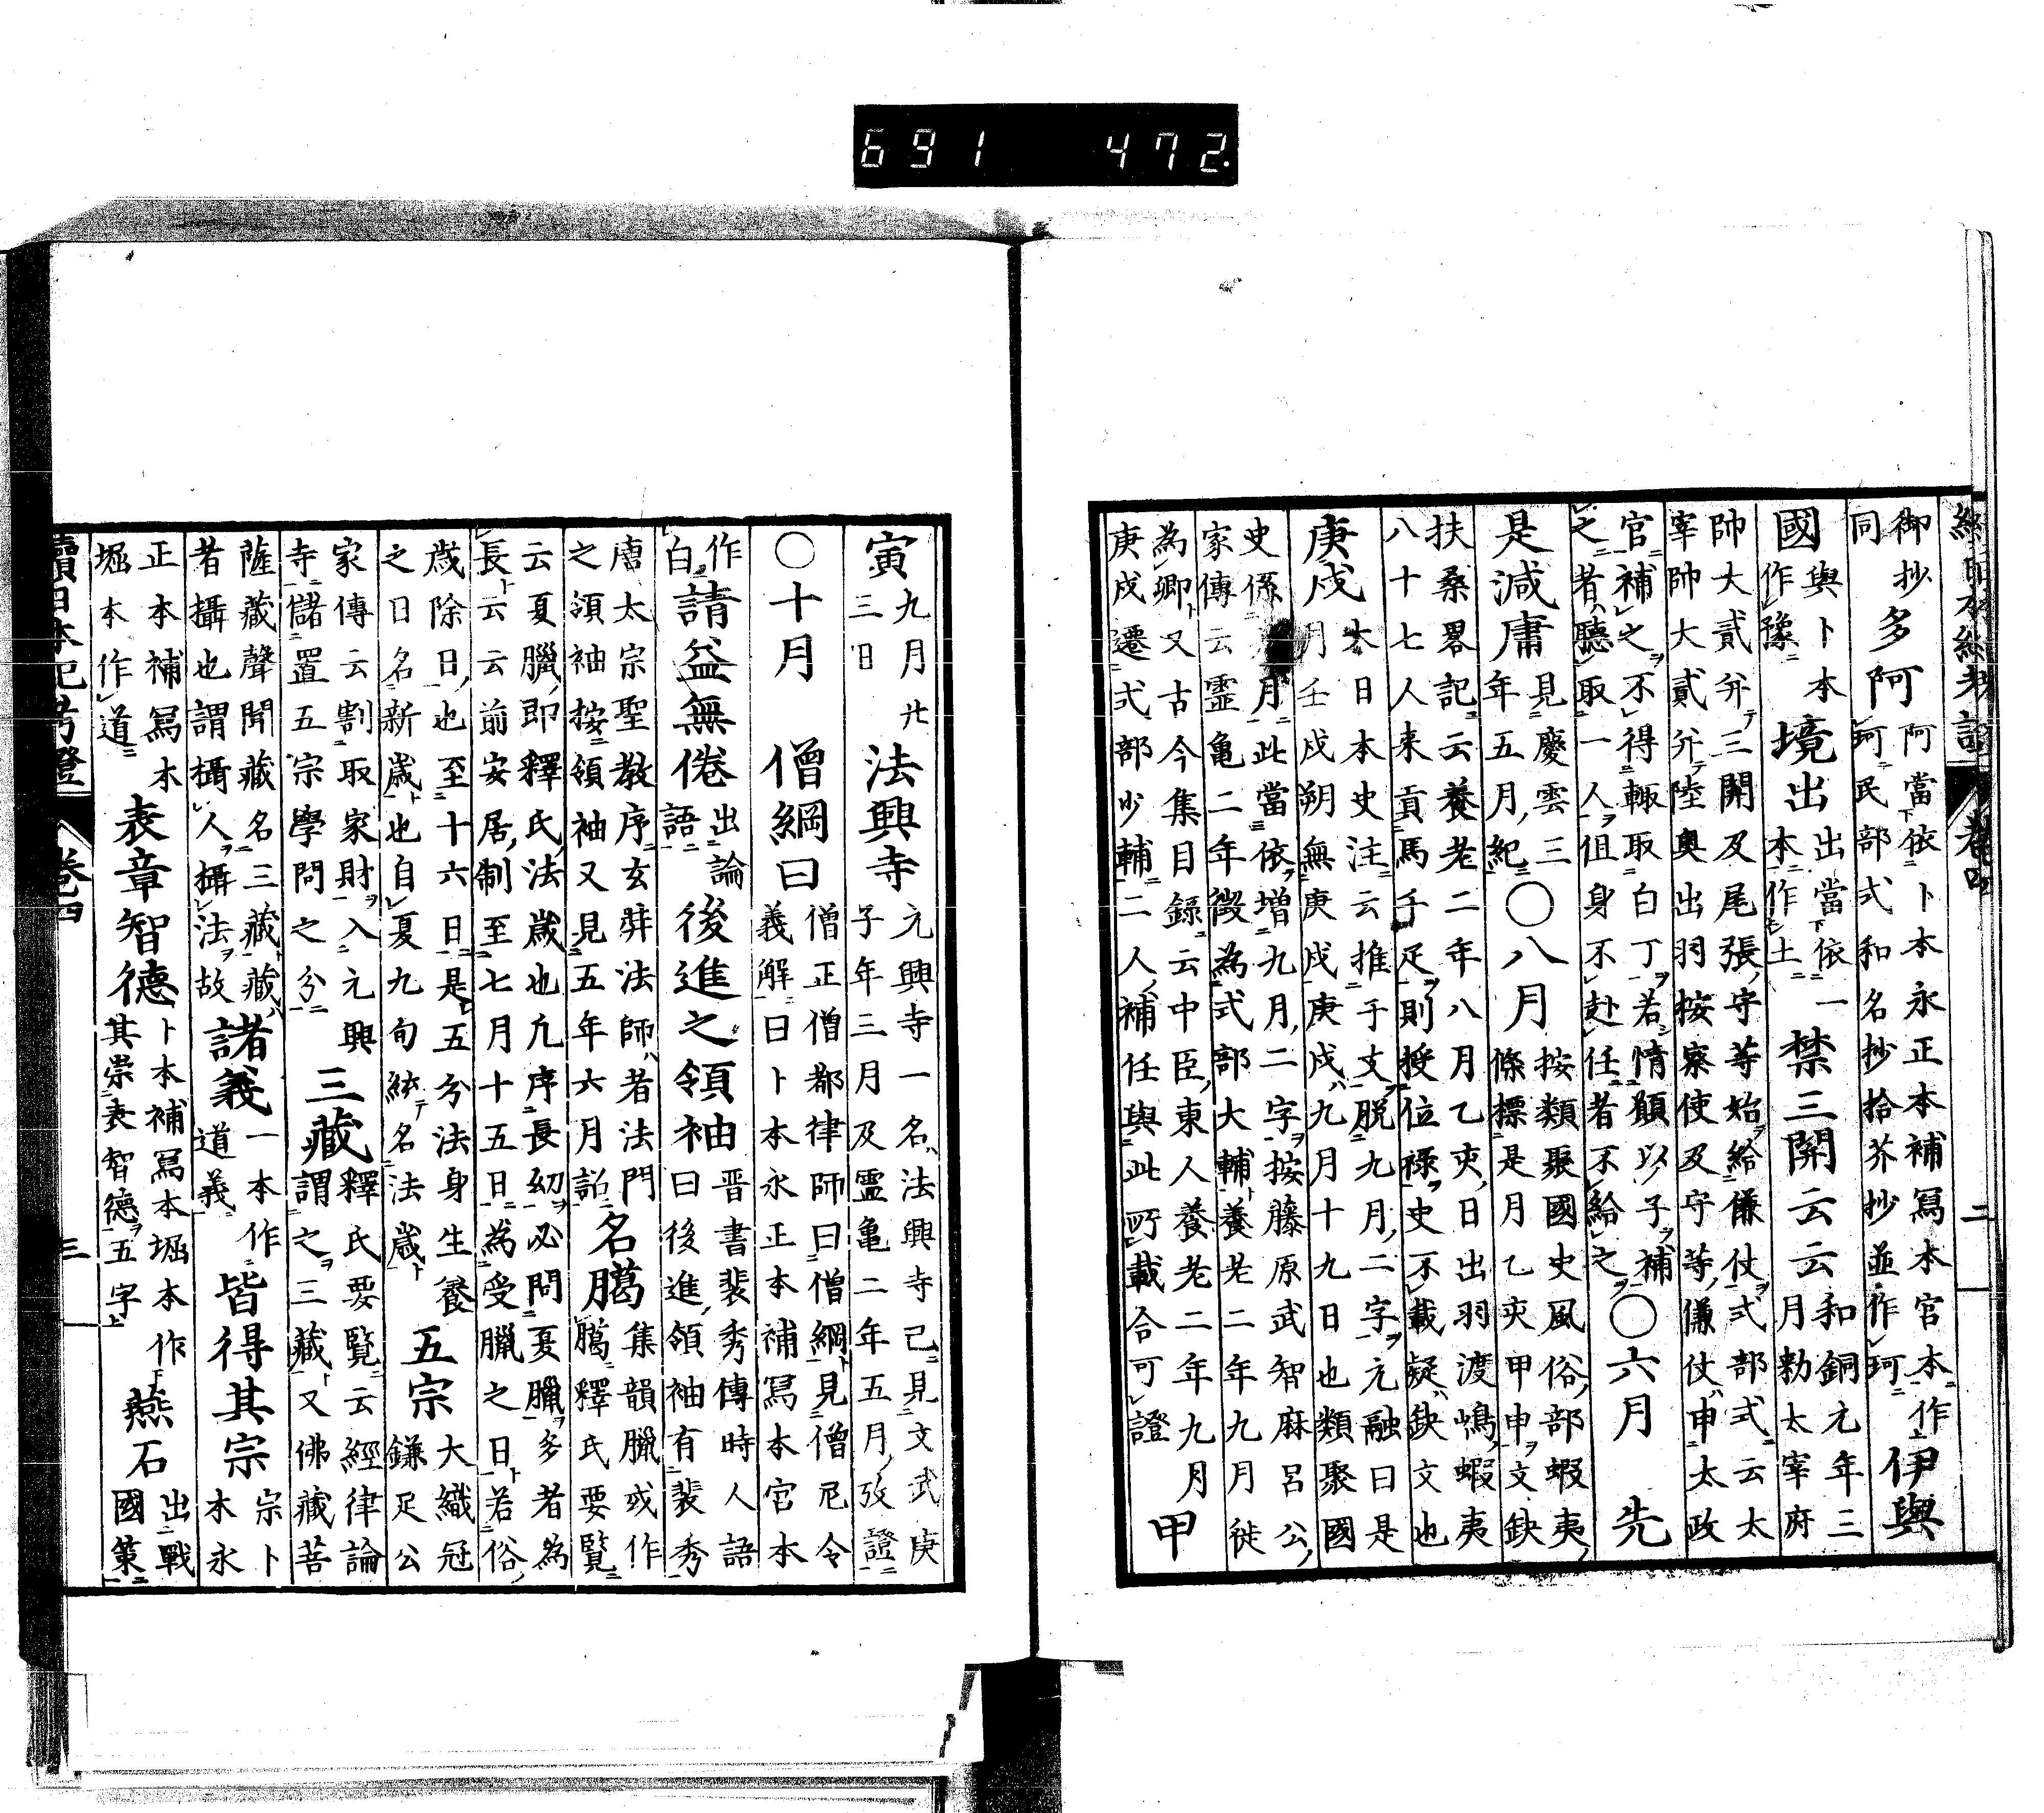 691 472
續日本紀考證 卷四 二
御抄 多阿 阿當依卜本永正本補寫本官本作
同 珂民部式和名抄拾芥抄並作珂 伊與
國 與卜本 境出 出當依一 禁三開云云 和銅元年三
作豫 本作土 月勅太宰府
帥大貳幷三關及尾張守等始給傔仗式部式云太
宰帥大貳幷陸奧出羽按察使及守等傔仗申太政
官補之不得輙取白丁若情願以子補 〇六月 先
之者聽取一人但身不赴任者不給之
是減庸 見慶雲三 〇八月 按類聚國史風俗部蝦夷
年五月紀 條標是月乙亥甲申文缺
扶桑畧記云養老二年八月乙亥日出羽渡嶋蝦夷
八十七人来貢馬千疋則授位祿史不載疑缺文也
庚戌 大日本史注云推于文脫九月二字元融曰是
月壬戌朔無庚戌庚戌九月十九日也類聚國
史係月此當依增九月二字按藤原武智麻呂公
家傳云靈亀二年徵為式部大輔養老二年九月徙
為卿又古今集目錄云中臣東人養老二年九月 甲
庚戌遷式部少輔二人補任與此所載合可證
寅 九月廿 法興寺 元興寺一名法興寺己見文武庚
三日 子年三月及靈亀二年五月攷證
〇十月 僧綱曰 僧正僧都律師曰僧綱見僧尼令
義解曰卜本永正本補寫本官本
作 請益無倦 出論 後進之領袖 晋書裴秀傳時人語
白 語 曰後進領袖有裴秀
唐太宗聖教序玄弉法師者法門 名臈 集韻臘或作
之領袖按領袖又見五年六月詔 臈釋氏要覽
云夏臘即釋氏法歲也凢序長幼必問夏臘多者為
長云云前安居制至七月十五日為受臘之日若俗
歲除日也至十六日是五分法身生養 五宗 大織冠
之日名新歲也自夏九旬統名法歲 鎌足公
家傳云割取家財入元興 三藏 釋氏要覽云經律論
寺儲置五宗學問之分 謂之三藏又佛藏菩
薩藏聲聞藏名三藏藏 諸義 一本作 皆得其宗 宗卜
者攝也謂攝人攝法故 道義 本永
正本補寫本 表章智德 卜本補寫本堀本作 燕石 出戰
堀本作道 其崇表智德五字 國策
續日本紀考證 卷四 三